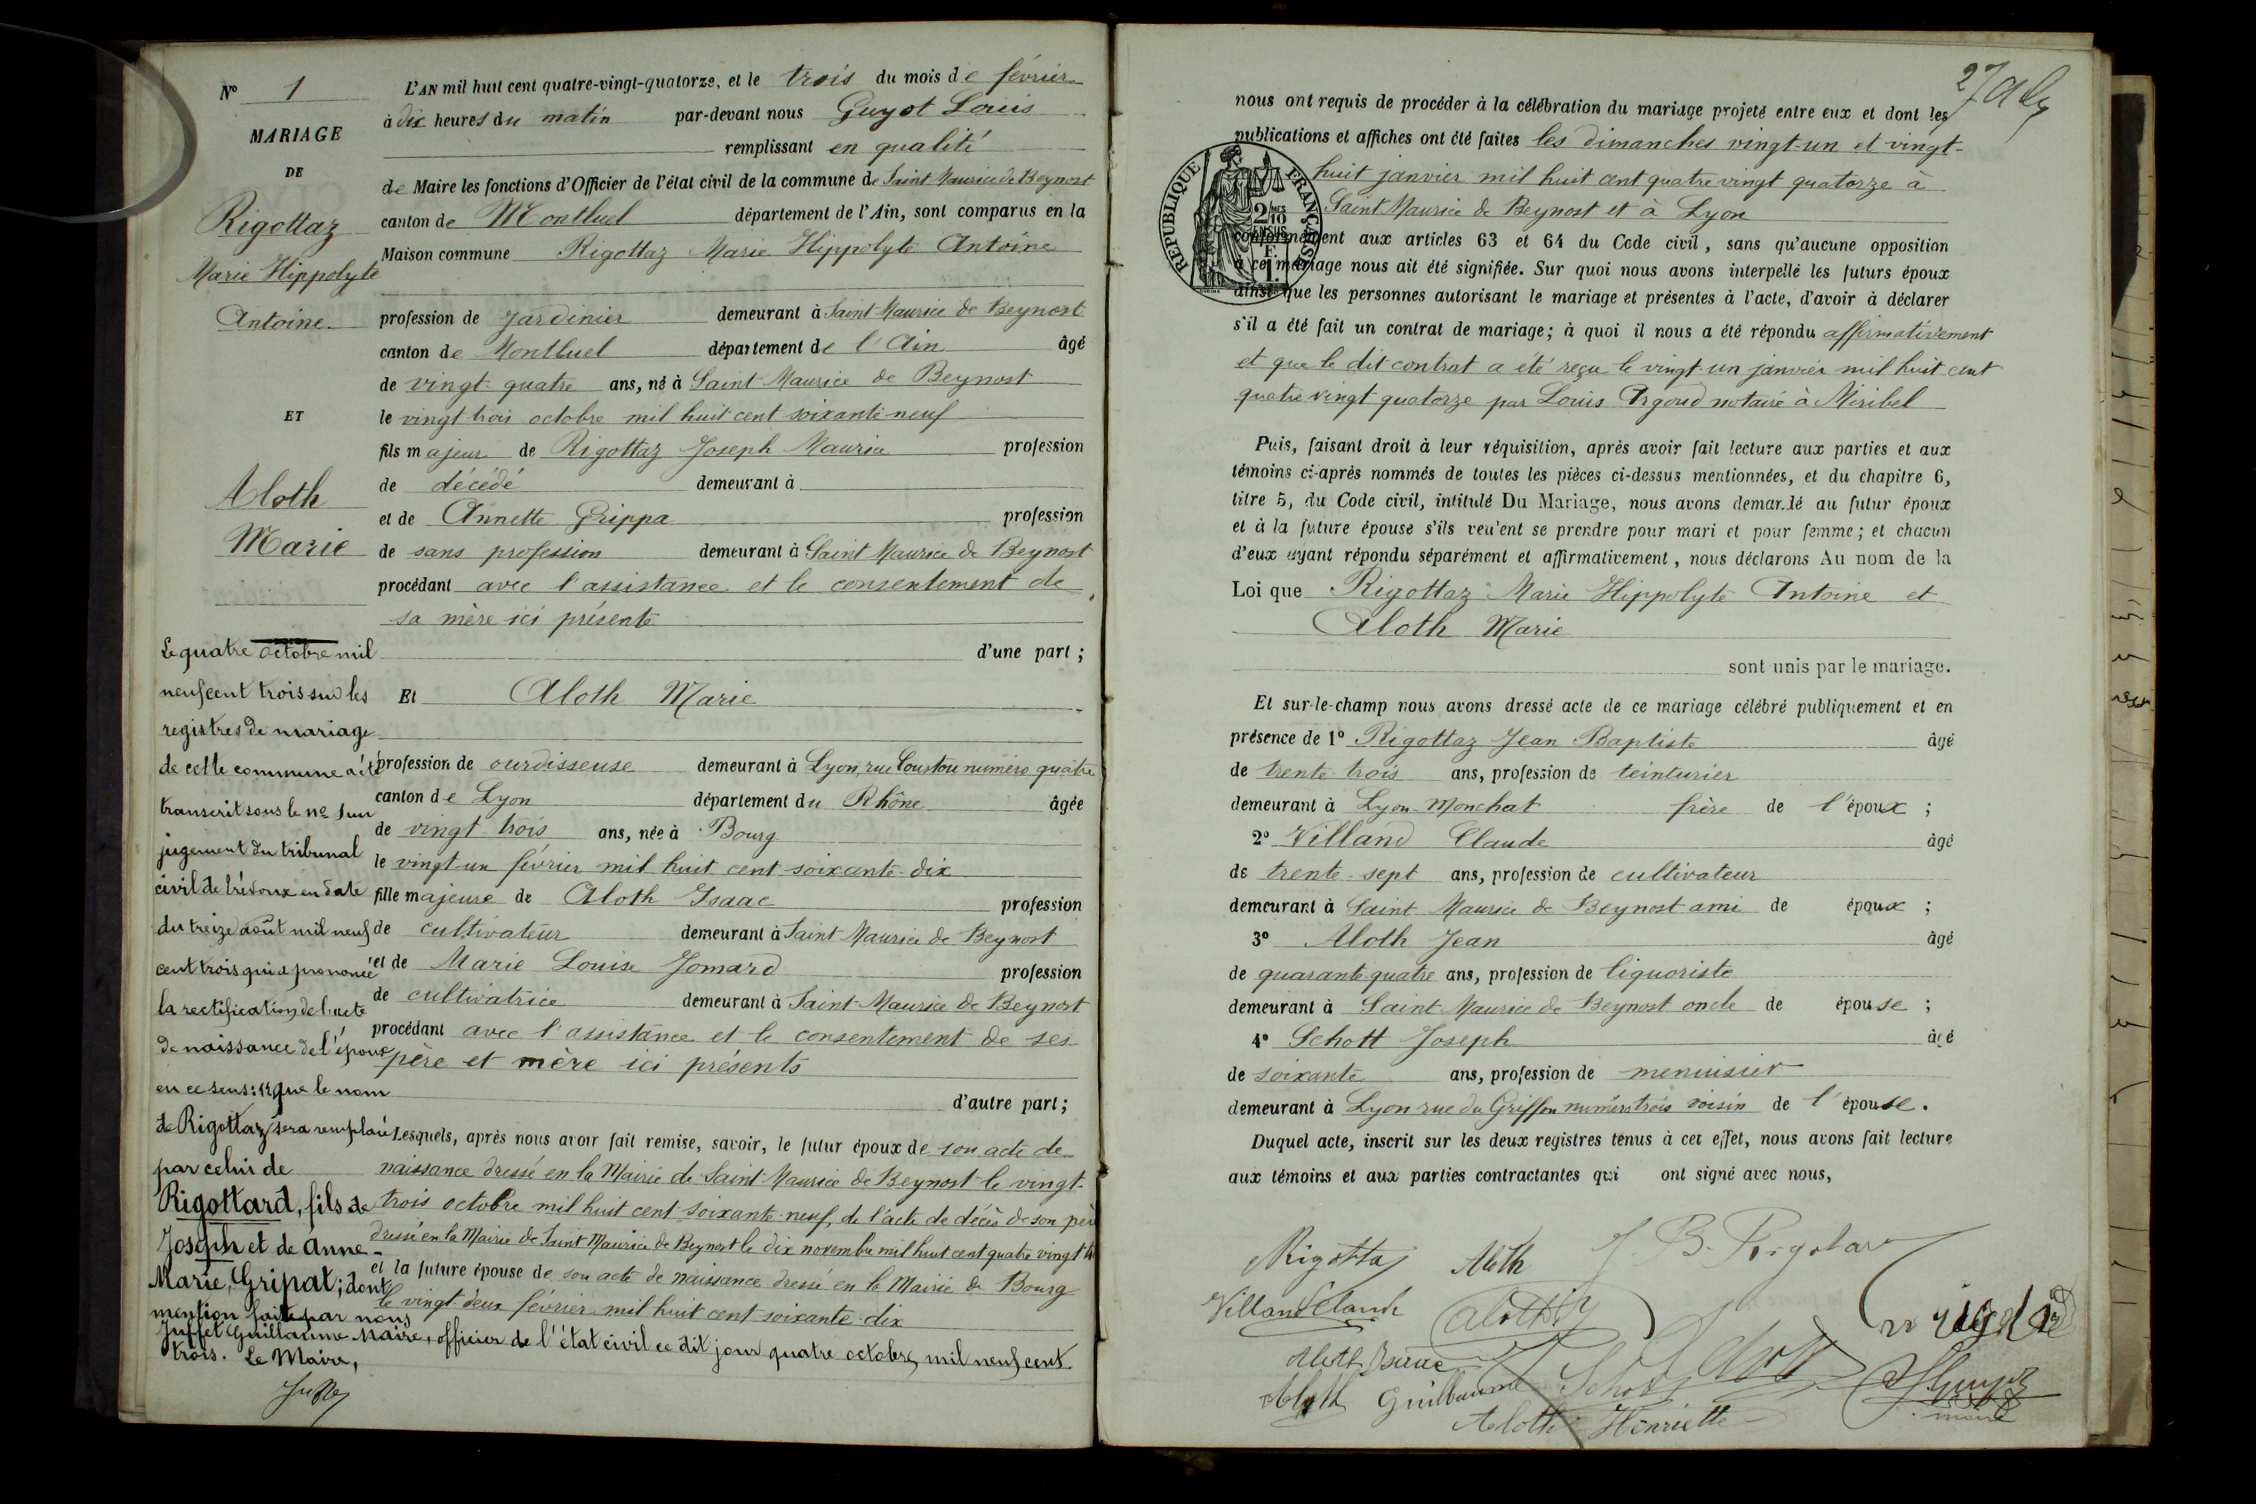 N° 1
MARIAGE
DE
Rigottaz
Marie Hippolyte
Antoine
ET
Aloth
Marie
Le quatre octobre mil
neuf cent trois sur les
registres de mariage
de cette commune a été
transcrit sous le n° 1 un
jugement du tribunal
civil de Trévoux en date
du treize août mil neuf
cent trois qui a prononcé
la rectification de l'acte
de naissance de l'époux
en ce sens: que le nom
de Rigottaz sera remplacé
par celui de
Rigottard, fils de
Joseph et de Anne-
Marie, Gripat; dont
mention faite par nous
Juffet Guillaume Maire, officier de l'état civil ce dit jour quatre octobre mil neuf cent
trois. Le Maire,
L'AN mil huit cent quatre-vingt-quatorze, et le trois du mois de février
à dix heures du matin par-devant nous Guyot Louis
remplissant en qualité
de Maire les fonctions d'Officier de l'état civil de la commune de Saint Maurice de Beynost
canton de Montluel département de l'Ain, sont comparus en la
Maison commune Rigottaz Marie Hippolyte Antoine
profession de jardinier demeurant à Saint Maurice de Beynost
canton de Montluel département de l'Ain âgé
de vingt quatre ans, né à Saint Maurice de Beynost
le vingt trois octobre mil huit cent soixante-neuf
fils majeur de Rigottaz Joseph Maurice profession
de décédé demeurant à
et de Annette Grippa profession
de sans profession demeurant à Saint Maurice de Beynost
procédant avec l'assistance et le consentement de
sa mère ici présente
d'une part;
Et Aloth Marie
profession de ourdisseuse demeurant à Lyon, rue Coustou numéro quatre
canton de Lyon département du Rhône âgée
de vingt trois ans, née à Bourg
le vingt-un février mil huit cent soixante-dix
fille majeure de Aloth Isaac profession
de cultivateur demeurant à Saint Maurice de Beynost
et de Marie Louise Jomard profession
de cultivatrice demeurant à Saint-Maurice de Beynost
procédant avec l'assistance et le consentement de ses
père et mère ici présents
d'autre part;
Lesquels, après nous avoir fait remise, savoir, le futur époux de son acte de
naissance dressé en la Mairie de Saint Maurice de Beynost le vingt-
trois octobre mil huit cent soixante-neuf, de l'acte de décès de son père
dressé en la Mairie de Saint Maurice de Beynost le dix novembre mil huit cent quatre vingt
et la future épouse de son acte de naissance dressé en la Mairie de Bourg
le vingt-deux février mil huit cent soixante-dix
nous ont requis de procéder à la célébration du mariage projeté entre eux et dont les
publications et affiches ont été faites les dimanches vingt-un et vingt-
huit janvier mil huit cent quatre vingt quatorze à
Saint Maurice de Beynost et à Lyon
RÉPUBLIQUE FRANÇAISE
conformément aux articles 63 et 64 du Code civil, sans qu'aucune opposition
à ce mariage nous ait été signifiée. Sur quoi nous avons interpellé les futurs époux
ainsi que les personnes autorisant le mariage et présentes à l'acte, d'avoir à déclarer
s'il a été fait un contrat de mariage; à quoi il nous a été répondu affirmativement
et que le dit contrat a été reçu le vingt-un janvier mil huit cent
quatre vingt quatorze par Louis Argoud notaire à Miribel
Puis, faisant droit à leur réquisition, après avoir fait lecture aux parties et aux
témoins ci-après nommés de toutes les pièces ci-dessus mentionnées, et du chapitre 6,
titre 5, du Code civil, intitulé Du Mariage, nous avons demandé au futur époux
et à la future épouse s'ils veulent se prendre pour mari et pour femme; et chacun
d'eux ayant répondu séparément et affirmativement, nous déclarons Au nom de la
Loi que Rigottaz Marie Hippolyte Antoine et
Aloth Marie
sont unis par le mariage.
Et sur-le-champ nous avons dressé acte de ce mariage célébré publiquement et en
présence de 1° Rigottaz Jean Baptiste âgé
de trente-trois ans, profession de teinturier
demeurant à Lyon-Monchat frère de l'époux;
2° Villand Claude âgé
de trente-sept ans, profession de cultivateur
demeurant à Saint Maurice de Beynost ami de époux;
3° Aloth Jean âgé
de quarante quatre ans, profession de liquoriste
demeurant à Saint Maurice de Beynost oncle de épouse;
4° Schott Joseph âgé
de soixante ans, profession de menuisier
demeurant à Lyon rue du Griffon numéro trois voisin de l'épouse.
Duquel acte, inscrit sur les deux registres tenus à cet effet, nous avons fait lecture
aux témoins et aux parties contractantes qui ont signé avec nous,
Rigottaz Aloth J. B. Rigotar
Villand Claude
Aloth Isaac
Aloth Guillaume
Aloth Henriette
maire